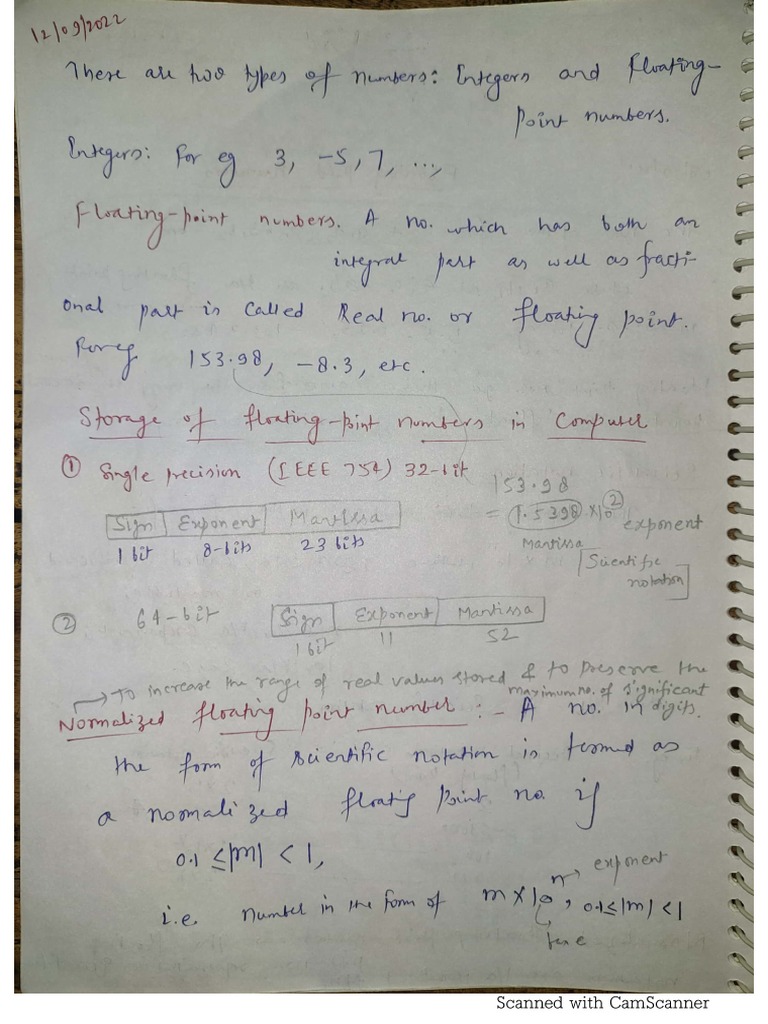 12/09/2022
There are two types of numbers: Integers and Floating-
Point numbers.
Integers: For eg 3, -5, 7, ...,
Floating-point numbers. A no. which has both an
integral part as well as fracti-
onal part is called Real no. or floating point.
For eg 153.98, -8.3, etc.
Storage of floating-point numbers in Computer
① Single precision (IEEE 754) 32-bit
153.98
Sign Exponent Mantissa
= 1.5398 × 10² exponent
1 bit 8-bits 23 bits
Mantissa
Scientific
notation
② 64-bit Sign Exponent Mantissa
1 bit 11 52
→ To increase the range of real values stored & to preserve the
maximum no. of significant
digits.
Normalized floating point number :- A no. in
the form of scientific notation is termed as
a normalized floatig point no. if
0.1 ≤ |m| < 1,
i.e. number in the form of m × 10ⁿ, 0.1 ≤ |m| < 1
→ exponent